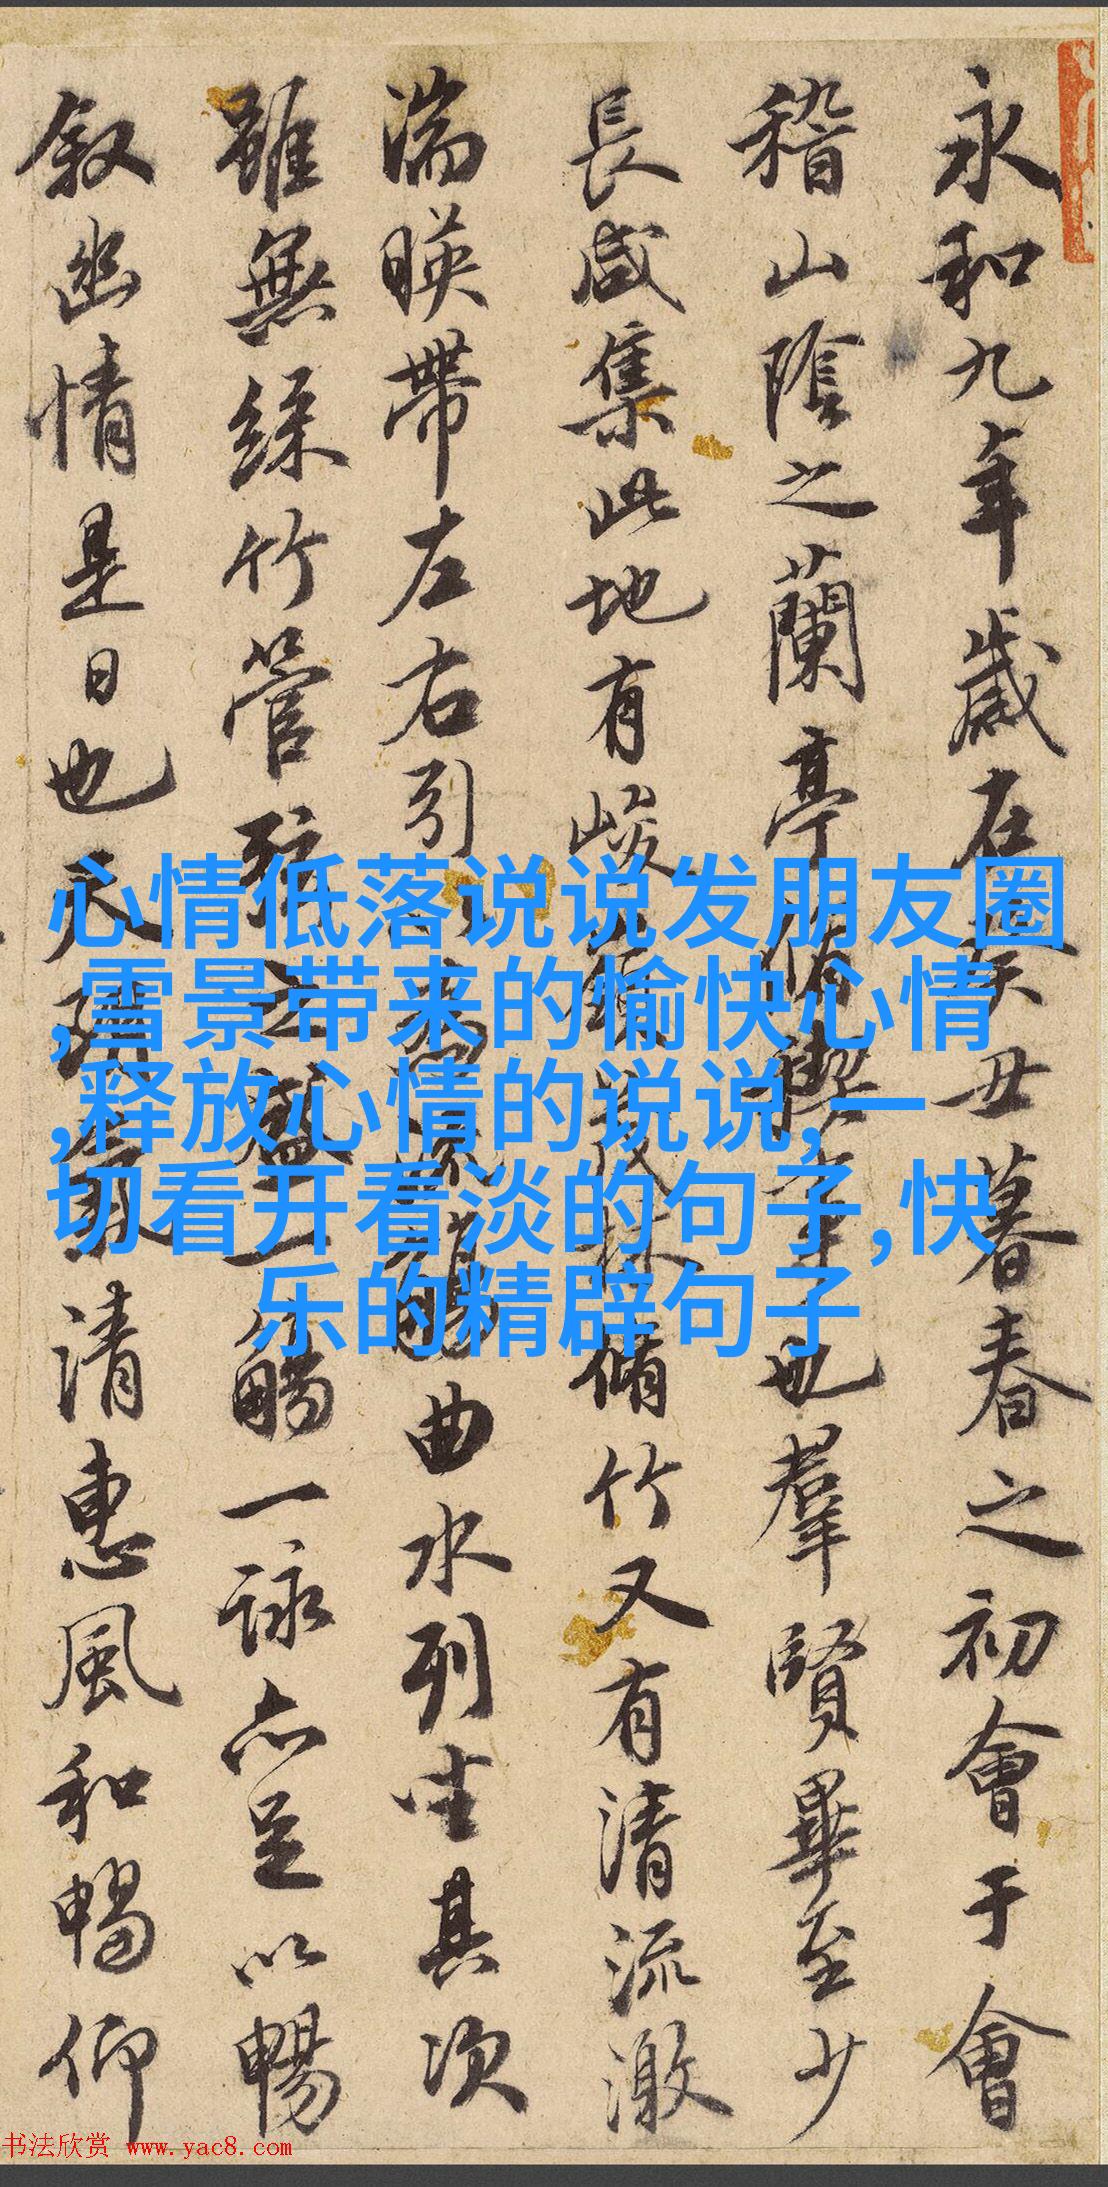 永和九年歲在癸丑暮春之初會于會
稽山陰之蘭亭脩禊事也羣賢畢至少
長咸集此地有峻領茂林脩竹又有清流激
湍暎帶左右引以為流觴曲水列坐其次
雖無絲竹管弦之盛一觴一詠亦足以暢
叙幽情是日也天朗氣清惠風和暢仰
心情低落说说发朋友圈
,雪景带来的愉快心情
,释放心情的说说,一
切看开看淡的句子,快
乐的精辟句子
书法欣赏 www.yac8.com